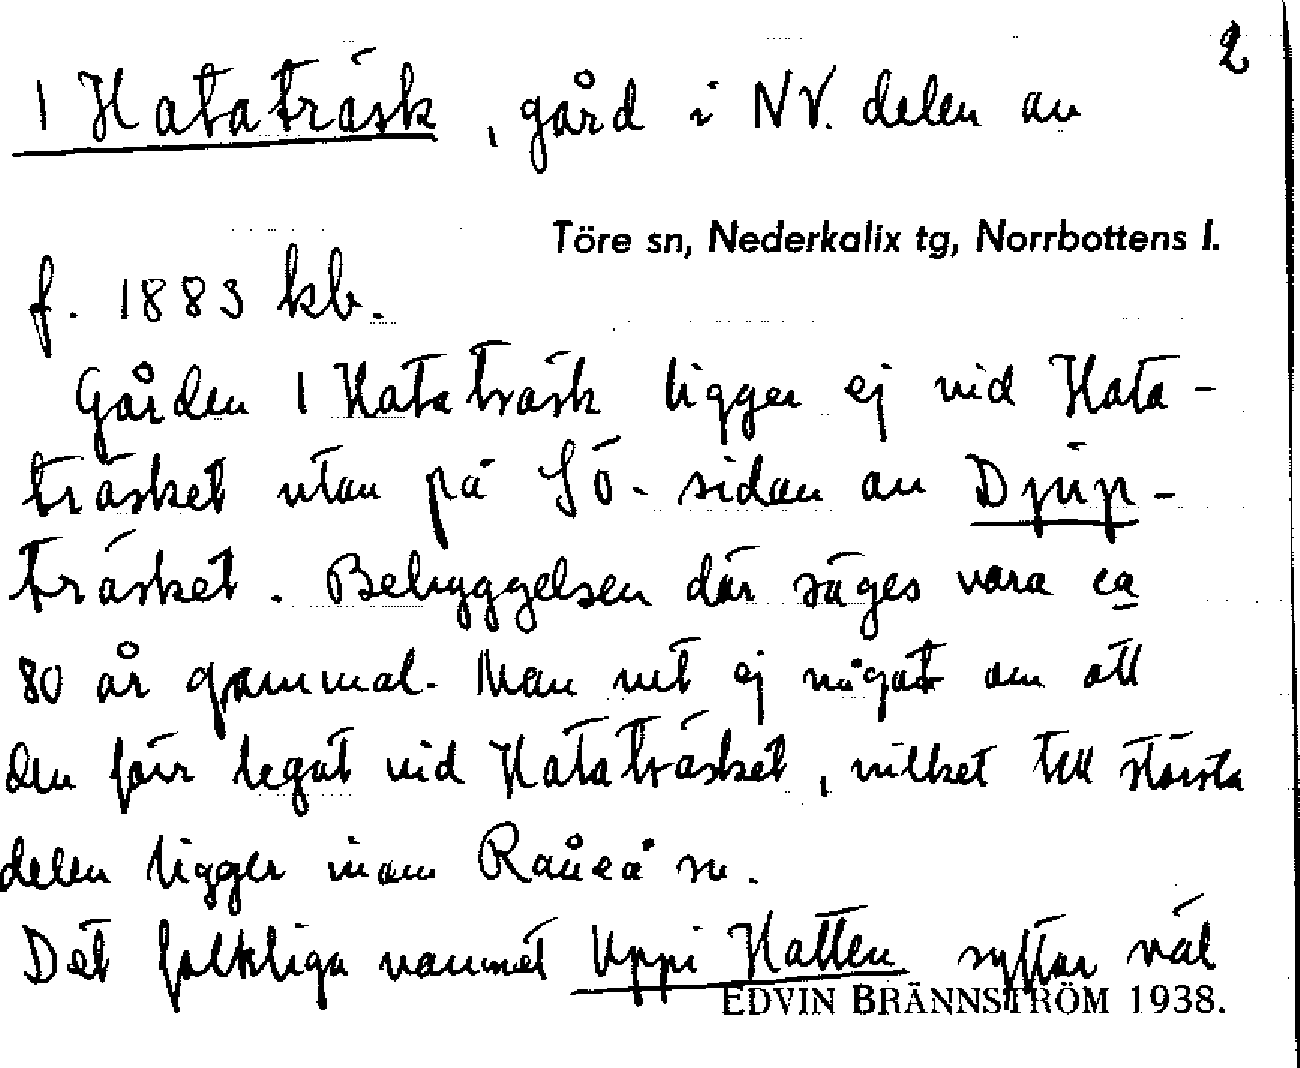 2
1 Hataträsk, gård i NV. delen av
Töre sn, Nederkalix tg, Norrbottens l.
f. 1883 kb.
Gården 1 Hataträsk ligger ej vid Hata-
träsket utan på SÖ-sidan av Djup-
träsket. Bebyggelsen där säges vara ca
80 år gammal. Man vet ej något om att
den förr legat vid Hataträsket, vilket till största
delen ligger inom Råneå sn.
Det folkliga namnet Uppi Hatten syftar väl
EDVIN BRÄNNSTRÖM 1938.